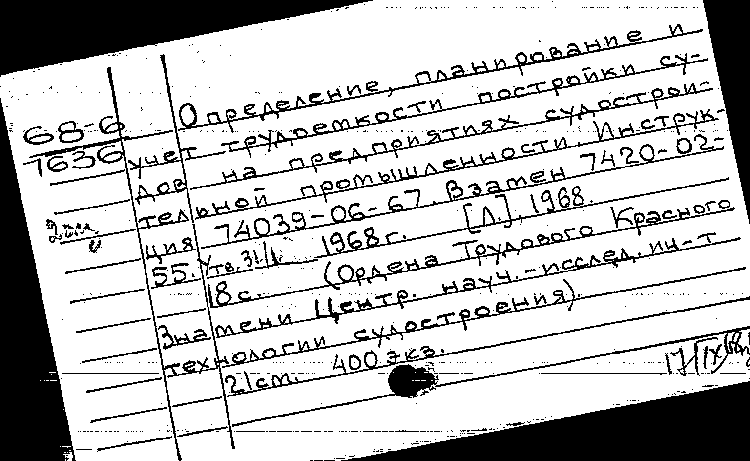 68-6
1636
2 экз
Определение, планирование и
учет трудоемкости постройки су-
дов на предприятиях судострои-
тельной промышленности. Инструк-
ция 74039-06-67. Взамен 7420-02-
55. Утв. 31/I 1968 г. [Л.], 1968.
18 с. (Ордена Трудового Красного
Знамени Центр. науч.-исслед. ин-т
технологии судостроения).
21 см. 400 экз.
17/IX